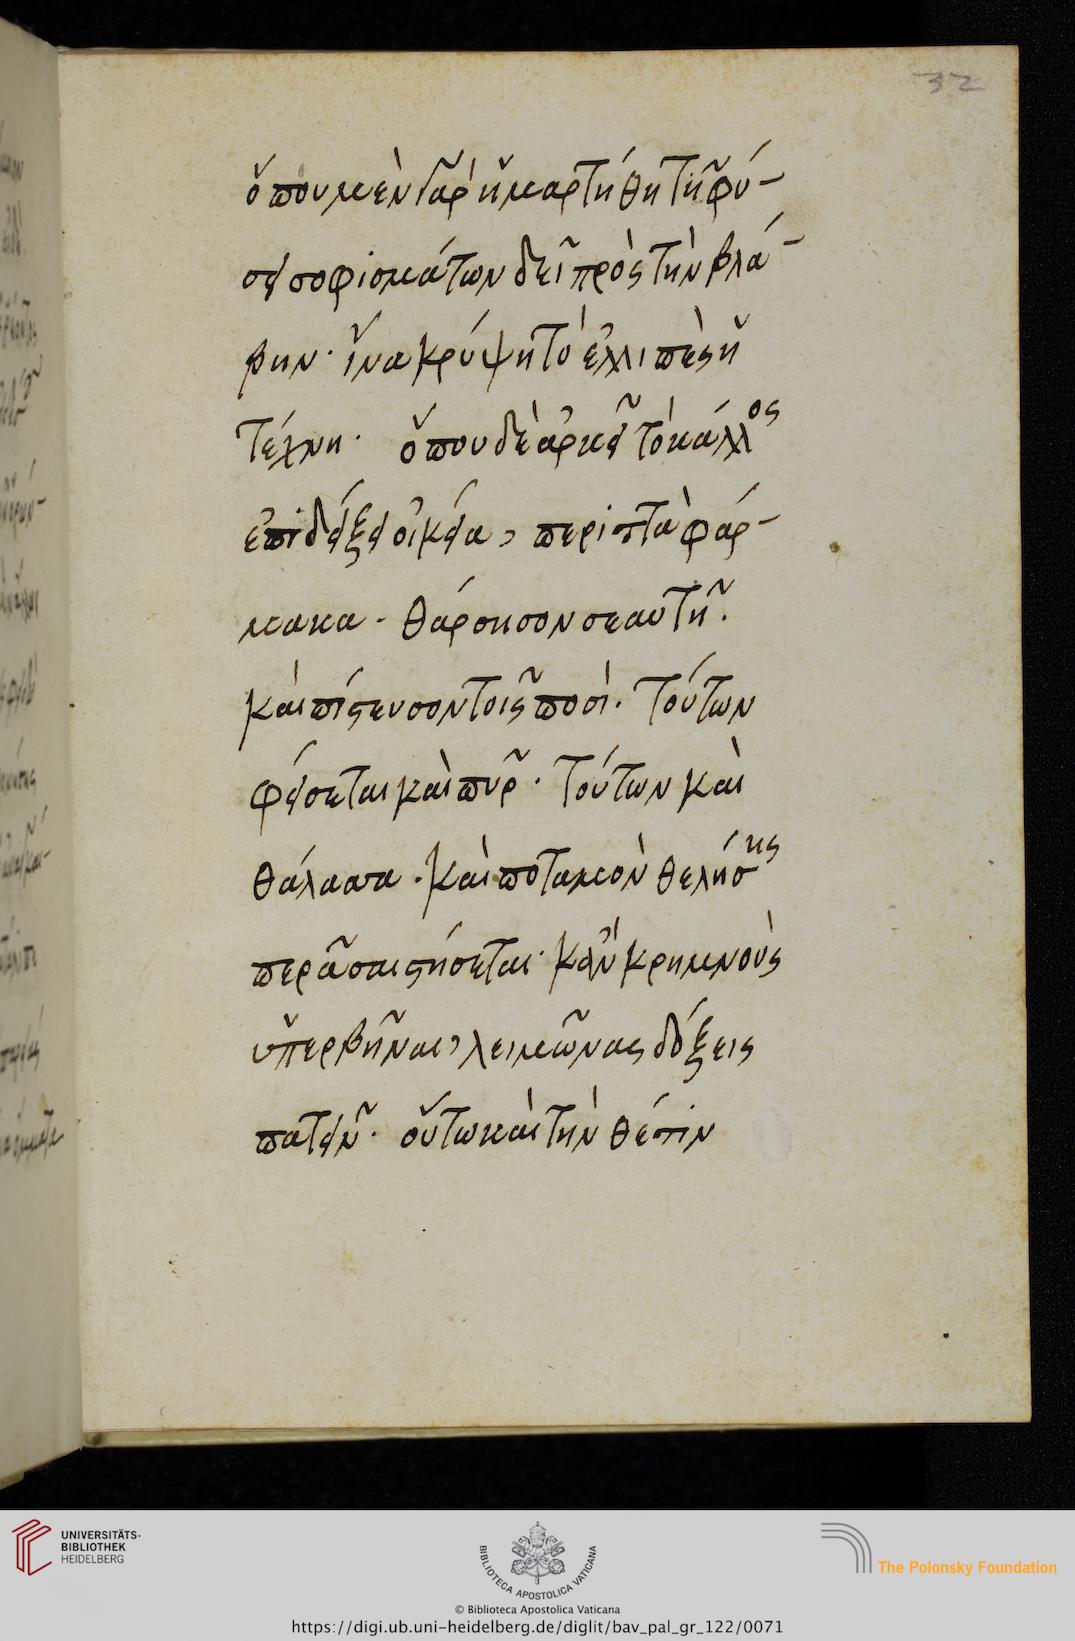 32
ὅπου μὲν γὰρ ἡμαρτήθη τῆ φύ-
σει σοφισμάτων δεῖ πρὸς τὴν βλά-
βην· ἵνα κρύψη τὸ ἐλλιπὲς ἡ
τέχνη· ὅπου δὲ ἀρκεῖ τὸ κάλλος
ἐπιδεῖξαι οἰκεῖα, περιττὰ φάρ-
μακα· θάρσησον σεαυτῆ·
καὶ πίστευσον τοῖς ποσί· τούτων
φείσεται καὶ πῦρ· τούτων καὶ
θάλασσα· κἂν ποταμὸν θελήσης
περᾶσαι στήσεται· κἂν κρημνοὺς
ὑπερβῆναι, λειμῶνας δόξεις
πατεῖν· οὕτω καὶ τὴν θέτιν
UNIVERSITÄTS-
BIBLIOTHEK
HEIDELBERG
BIBLIOTECA APOSTOLICA VATICANA
The Polonsky Foundation
© Biblioteca Apostolica Vaticana
https://digi.ub.uni-heidelberg.de/diglit/bav_pal_gr_122/0071